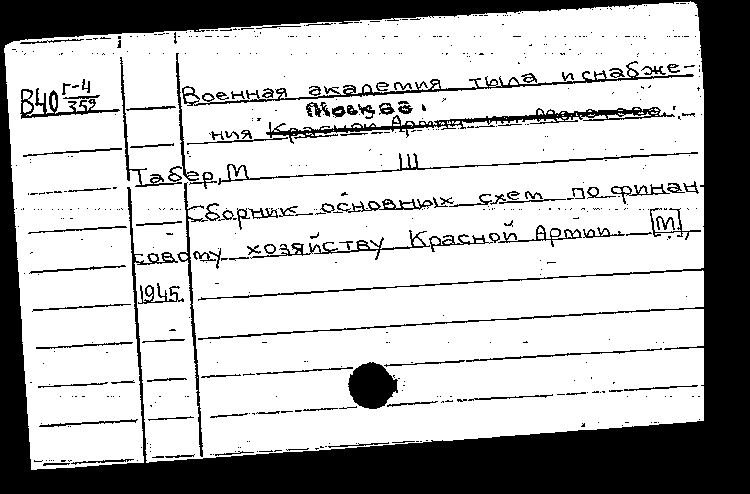 В40 Г-4/359
Военная академия тыла и снабже-
Москва.
ния Красной Армии им. Молотова.
Табер, М III
Сборник основных схем по финан-
совому хозяйству Красной Армии. [М],
1945.